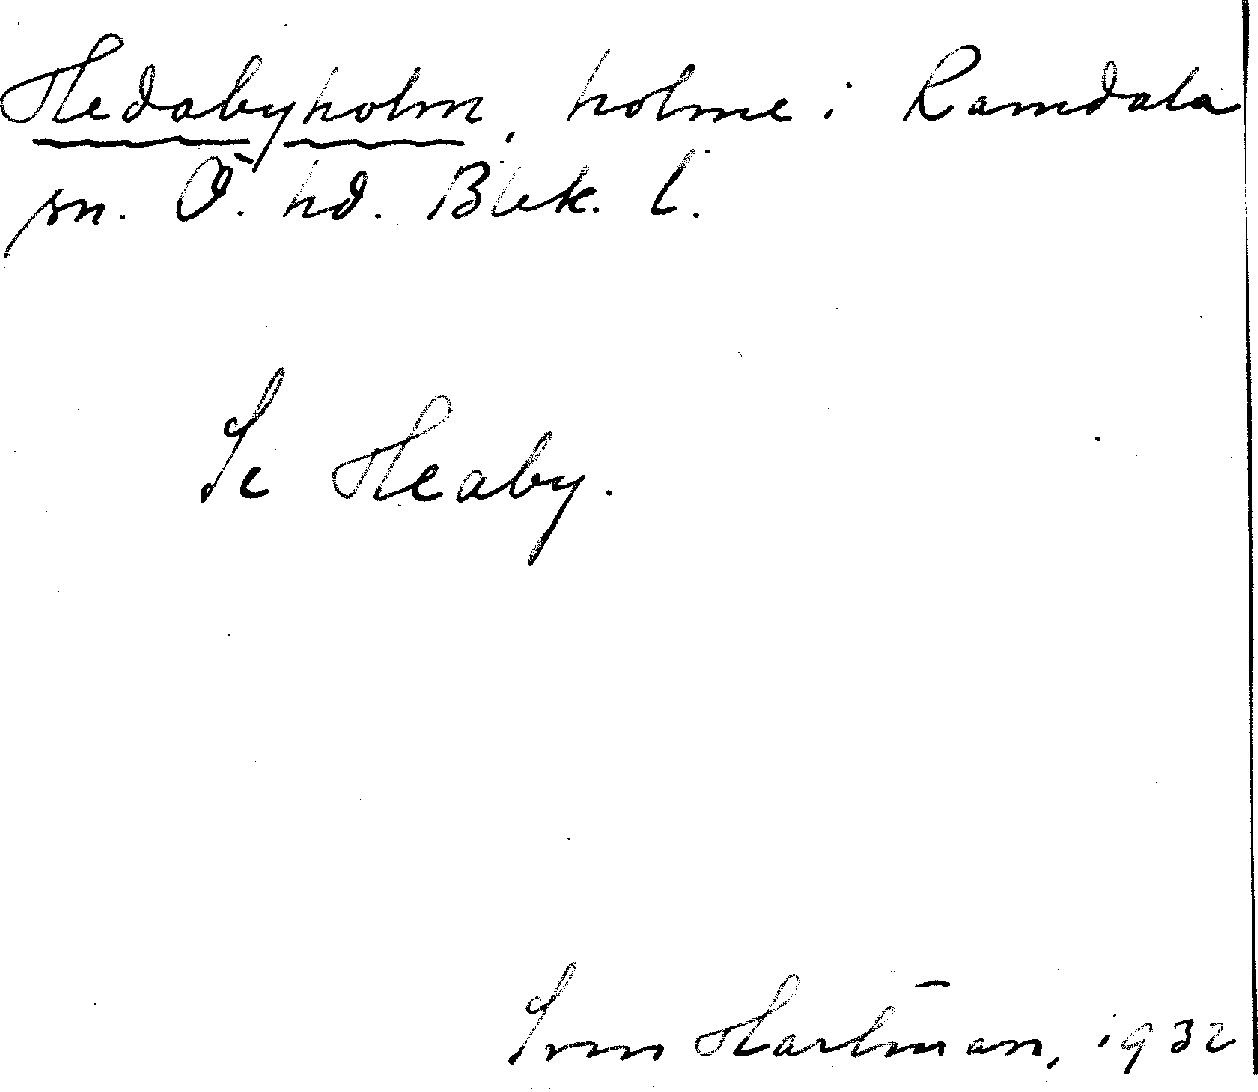 Hedabyholm, holme i Ramdala
sn. Ö. hd. Blek. l.
Se Heaby.
Sven Hartman, 1932